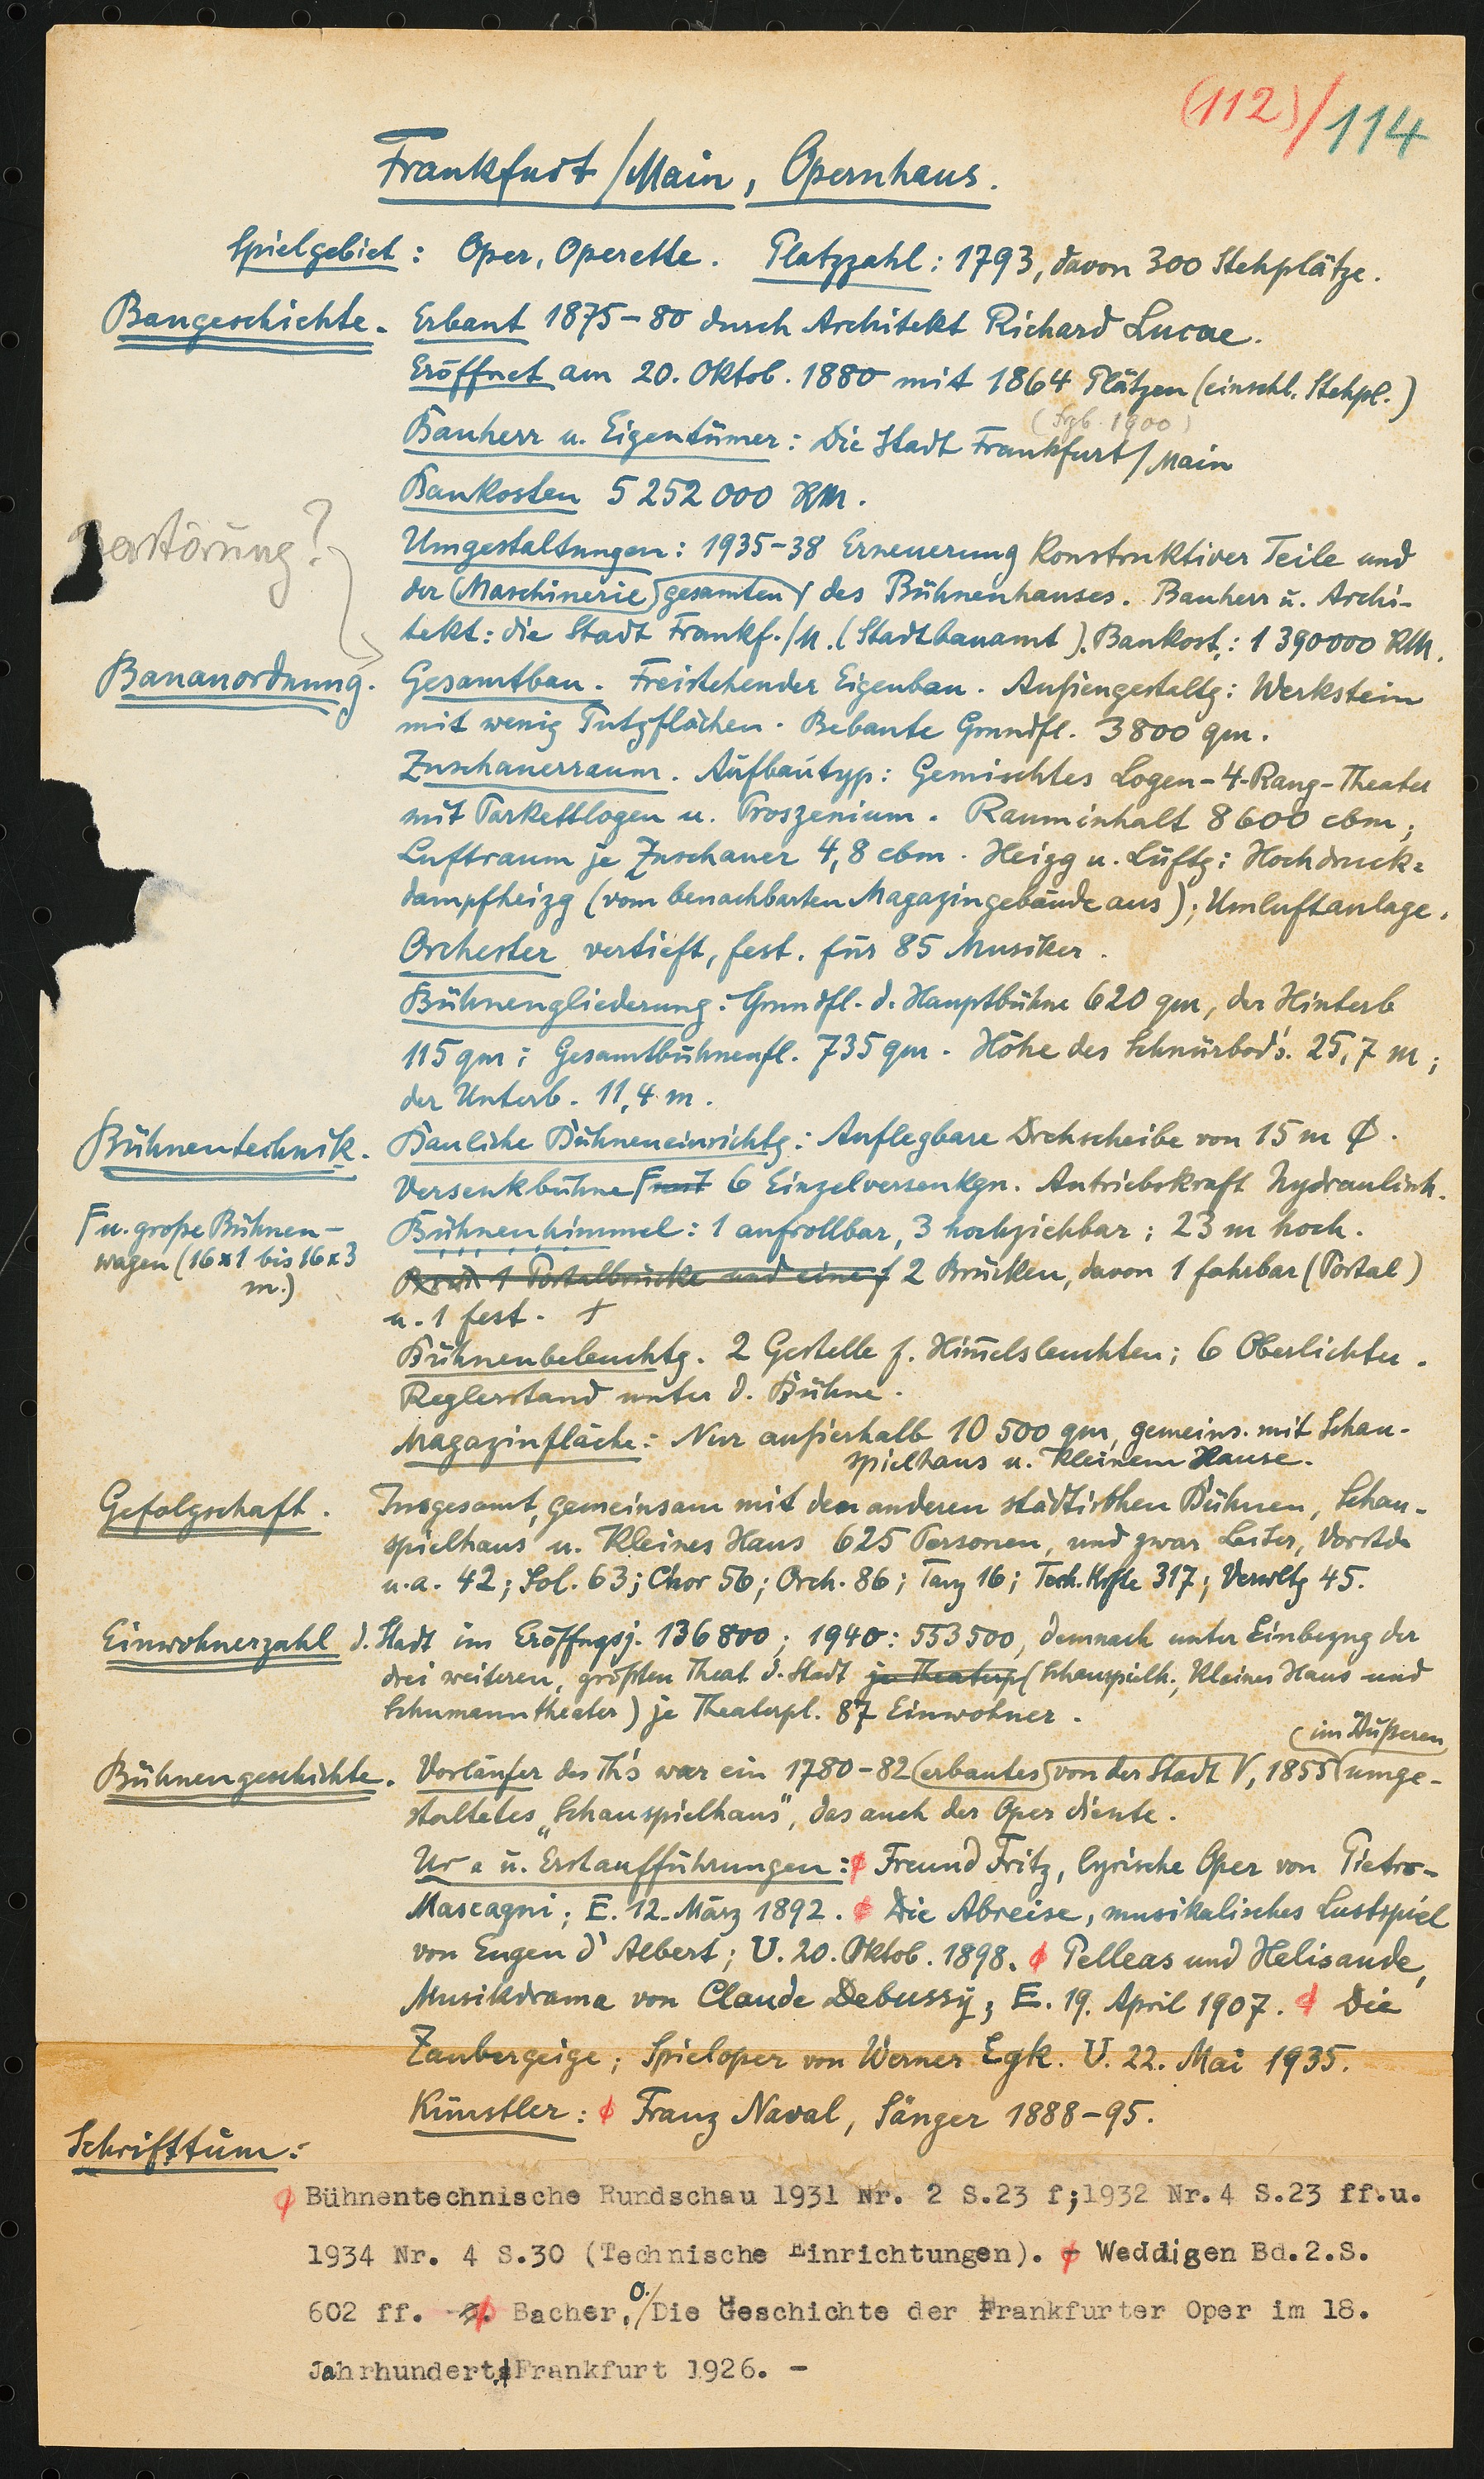 (112)/114
Frankfurt/Main, Opernhaus.
Spielgebiet: Oper, Operette. Platzzahl: 1793, davon 300 Stehplätze.
Baugeschichte. Erbaut 1875-80 durch Architekt Richard Lucae.
Eröffnet am 20. Oktob. 1880 mit 1864 Plätzen (einschl. Stehpl.)
1900)
Bauherr u. Eigentümer: Die Stadt Frankfurt/Main
Baukosten 5 252 000 RM.
Zerstörung?
Umgestaltungen: 1935-38 Erneuerung konstruktiver Teile und
der (Maschinerie) gesamten des Bühnenhauses. Bauherr u. Archi-
tekt: die Stadt Frankf./M. (Stadtbauamt). Baukost.: 1 390 000 RM.
Bauanordnung. Gesamtbau. Freistehender Eigenbau. Außengestaltg: Werkstein
mit wenig Putzflächen. Bebaute Grundfl. 3800 qm.
Zuschauerraum. Aufbautyp: Gemischtes Logen-4-Rang-Theater
mit Parkettlogen u. Proszenium. Rauminhalt 8600 cbm;
Luftraum je Zuschauer 4,8 cbm. Heizg u. Lüftg: Hochdruck=
dampfheizg (vom benachbarten Magazingebäude aus); Umluftanlage.
Orchester vertieft, fest. für 85 Musiker.
Bühnengliederung: Grundfl. d. Hauptbühne 620 qm, der Hinterb
115 qm; Gesamtbühnenfl. 735 qm. Höhe des Schnürbod's. 25,7 m;
der Unterb. 11,4 m.
Bühnentechnik. Bauliche Bühneneinrichtg: Auflegbare Drehscheibe von 15 m Ø.
Versenkbühne mit 6 Einzelversenkgn. Antriebskraft hydraulisch.
u. große Bühnen-
wagen (16x1 bis 16x3
m.)
Bühnenhimmel: 1 aufrollbar, 3 hochziehbar; 23 m hoch.
1 Portalbrücke und eine f 2 Brücken, davon 1 fahrbar (Portal)
u. 1 fest.
Bühnenbeleuchtg. 2 Gestelle f. Him̄elsleuchten; 6 Oberlichter.
Reglerstand unter d. Bühne.
Magazinfläche: Nur außerhalb 10 500 qm, gemeins. mit Schau-
spielhaus u. Kleinem Hause.
Gefolgschaft. Insgesamt, gemeinsam mit den anderen städtischen Bühnen, Schau-
spielhaus u. Kleines Haus 625 Personen, und zwar Leiter, Vorstde
u.a. 42; Sol. 63; Chor 56; Orch. 86; Tanz 16; Tech. Kräfte 317; Verwltg 45.
Einwohnerzahl d. Stadt im Eröffngsj. 136 800; 1940: 553 500, demnach unter Einbezug der
drei weiteren, größten Theat. d. Stadt je Theaterp (Schauspielh., Kleines Haus und
Schumanntheater) je Theaterpl. 87 Einwohner.
im Äußeren
Bühnengeschichte. Vorläufer des Th's war ein 1780-82 (erbautes) von der Stadt, 1855 umge-
staltetes „Schauspielhaus", das auch der Oper diente.
Ur= u. Erstaufführungen: Freund Fritz, lyrische Oper von Pietro-
Mascagni; E. 12. März 1892. Die Abreise, musikalisches Lustspiel
von Eugen d'Albert; U. 20. Oktob. 1898. Pelleas und Melisande,
Musikdrama von Claude Debussy; E. 19. April 1907. Die
Zaubergeige; Spieloper von Werner Egk. U. 22. Mai 1935.
Künstler: Franz Naval, Sänger 1888-95.
Schrifttum:
Bühnentechnische Rundschau 1931 Nr. 2 S.23 f;1932 Nr.4 S.23 ff.u.
1934 Nr. 4 S.30 (Technische Einrichtungen). Weddigen Bd.2.S.
602 ff. - Bacher, O./Die Geschichte der Frankfurter Oper im 18.
Jahrhundert. Frankfurt 1926. -